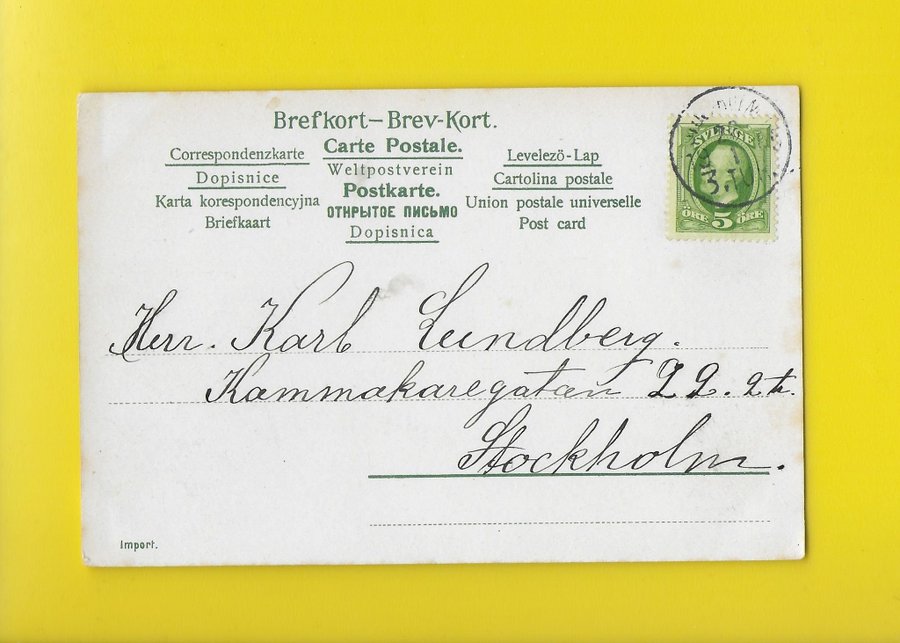 Brefkort–Brev-Kort.
Correspondenzkarte
Carte Postale.
Levelezö-Lap
Dopisnice
Weltpostverein
Cartolina postale
Karta korespondencyjna
Postkarte.
Union postale universelle
Briefkaart
ОТКРЫТОЕ ПИСЬМО
Post card
Dopisnica
SVERIGE
ÖRE 5 ÖRE
Herr. Karl Lundberg.
Kammakaregatan 22. 2 tr.
Stockholm.
Import.